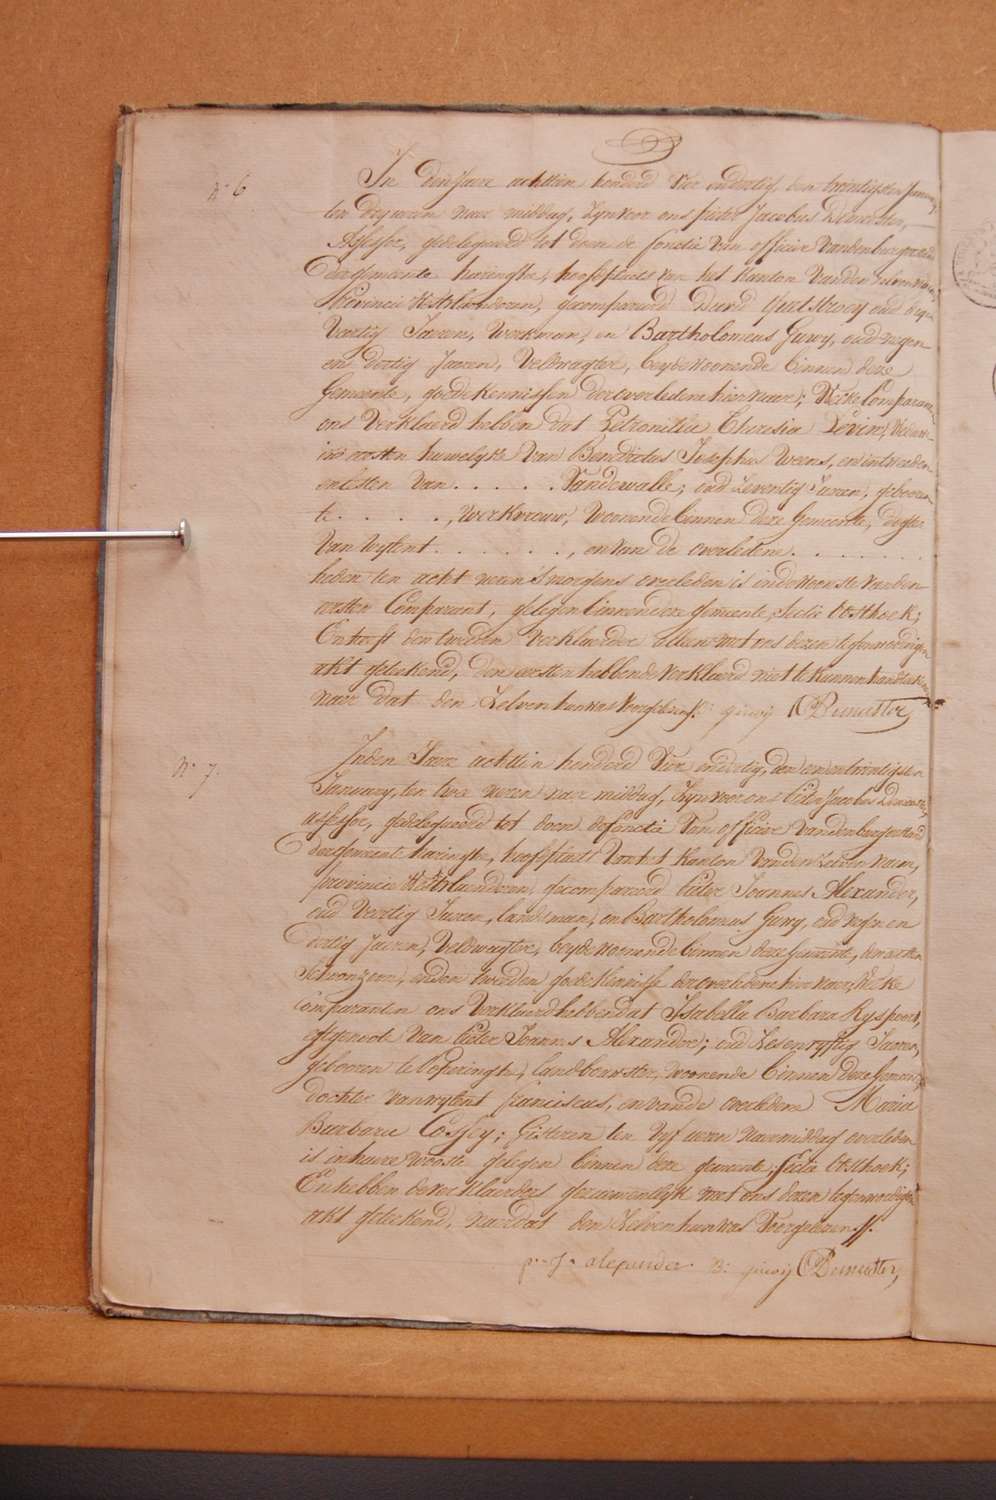 N.º 6
In den Jaere achttien honderd vier en dertig, den twintigsten January,
ten dry uren naer middag, zyn voor ons pieter Jacobus Demeester,
Assessor, gedelegueerd tot doen de fonctie van officier van den burgerstand
der gemeente haringhe, hoofdplaets van het kanton van den zelven naem,
provincie Westvlaenderen, gecompareerd David oud
veertig Jaeren, werkman, en Bartholomeus Guwy, oud negen
en dertig Jaeren, veldwagter, beyde woonende binnen deze
Gemeente, goede kennissen der overledene hier naer; Welke Comparanten
ons verklaerd hebben dat Petronilla Theresia Devin, weduwe
in eersten huwelyke van Benedictus Josephus Weens, en in tweeden
en lesten van . . . . . Vandewalle; oud zeventig Jaeren, gebooren
te . . . . , werkvrouw, woonende binnen deze Gemeente, dogter
van wylent . . . . . . , en van de overledene . . . . . . .
heden ten acht uren 's morgens overleden is in de woonste van den
eersten Comparant, gelegen binnen deze gemeente, sectie Oosthoek;
En heeft den tweeden verklaerder alleen met ons dezen tegenwoordigen
akt geteekend, den eersten hebbende verklaerd niet te kunnen handteekenen
naer dat den zelven hun was voorgelezen ./. B: guwij Demeester,
N.º 7.
In den Jaere achttien honderd vier en dertig, den een en twintigsten
January, ten twee uren naer middag, zyn voor ons Pieter Jacobus Demeester,
assessor, gedelegueerd tot doen de fonctie van officier van den burgerstand
der gemeente haringhe, hoofdplaets van het kanton van den zelven naem,
provincie Westvlaenderen, gecompareerd Pieter Joannes Alexander,
oud veertig Jaeren, landsman, en Bartholomeus Guwy, oud negen en
dertig Jaeren, veldwagter, beyde woonende binnen deze Gemeente, den eersten
Schoonzoon, en den tweeden goede kennisse der overledene hier naer; Welke
Comparanten ons verklaerd hebben dat Isabella Barbara Ryspeert,
egtgenoote van Pieter Joannes Alexander; oud zes en vyftig Jaeren,
gebooren te Poperinghe, landbouwster, woonende binnen deze Gemeente,
dochter van wylent franciscus, en van de overledene Maria
Barbara Cossey; gisteren ten vyf uren naermiddag overleden
is in haere wooste gelegen binnen deze gemeente, sectie Oosthoek;
En hebben de verklaerders gezaementlyk met ons dezen tegenwoordigen
akt geteekend, naer dat den zelven hun was voorgelezen ./.
p. J. alexander. B: guwij Demeester,